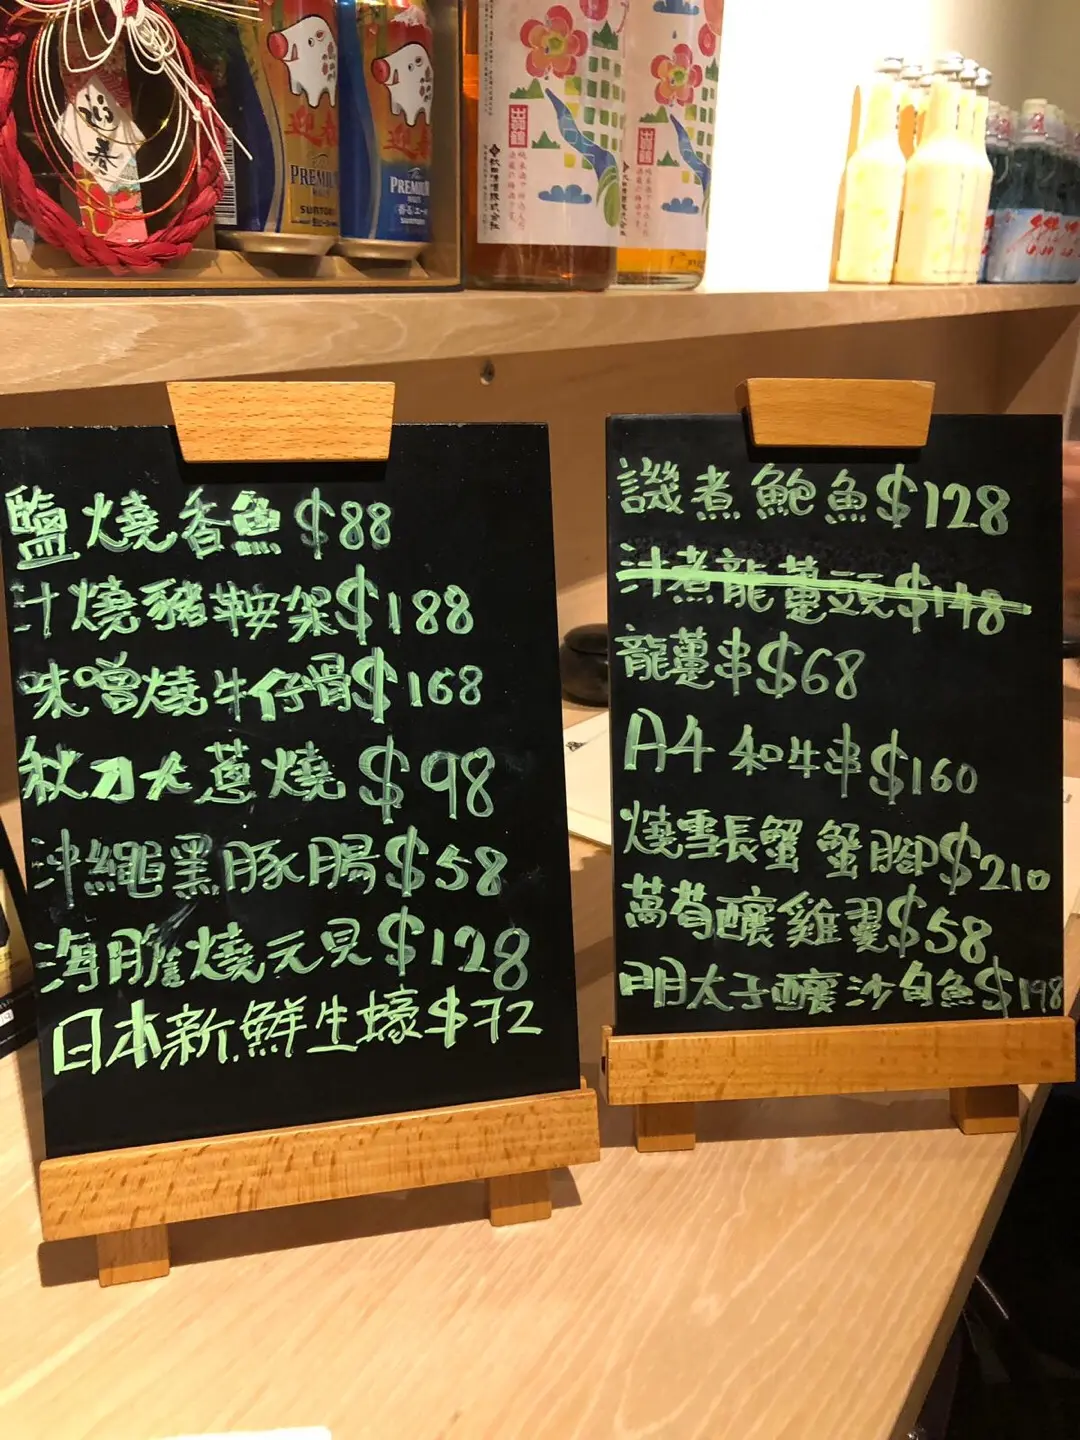 迎春
迎春
迎春
PREMIUM
SUNTORY
PREMIUM
香るエール
SUNTORY
出羽鶴
出羽鶴
鹽燒香魚$88
汁燒豬鞍架$188
味噌燒牛仔骨$168
秋刀大蔥燒$98
沖繩黑豚腸$58
海膽燒元貝$128
日本新鮮生蠔$72
譏煮鮑魚$128
汁煮龍躉頭$148
龍躉串$68
A4和牛串$160
燒雪長蟹蟹腳$210
萵荀釀雞翼$58
明太子釀沙白魚$198